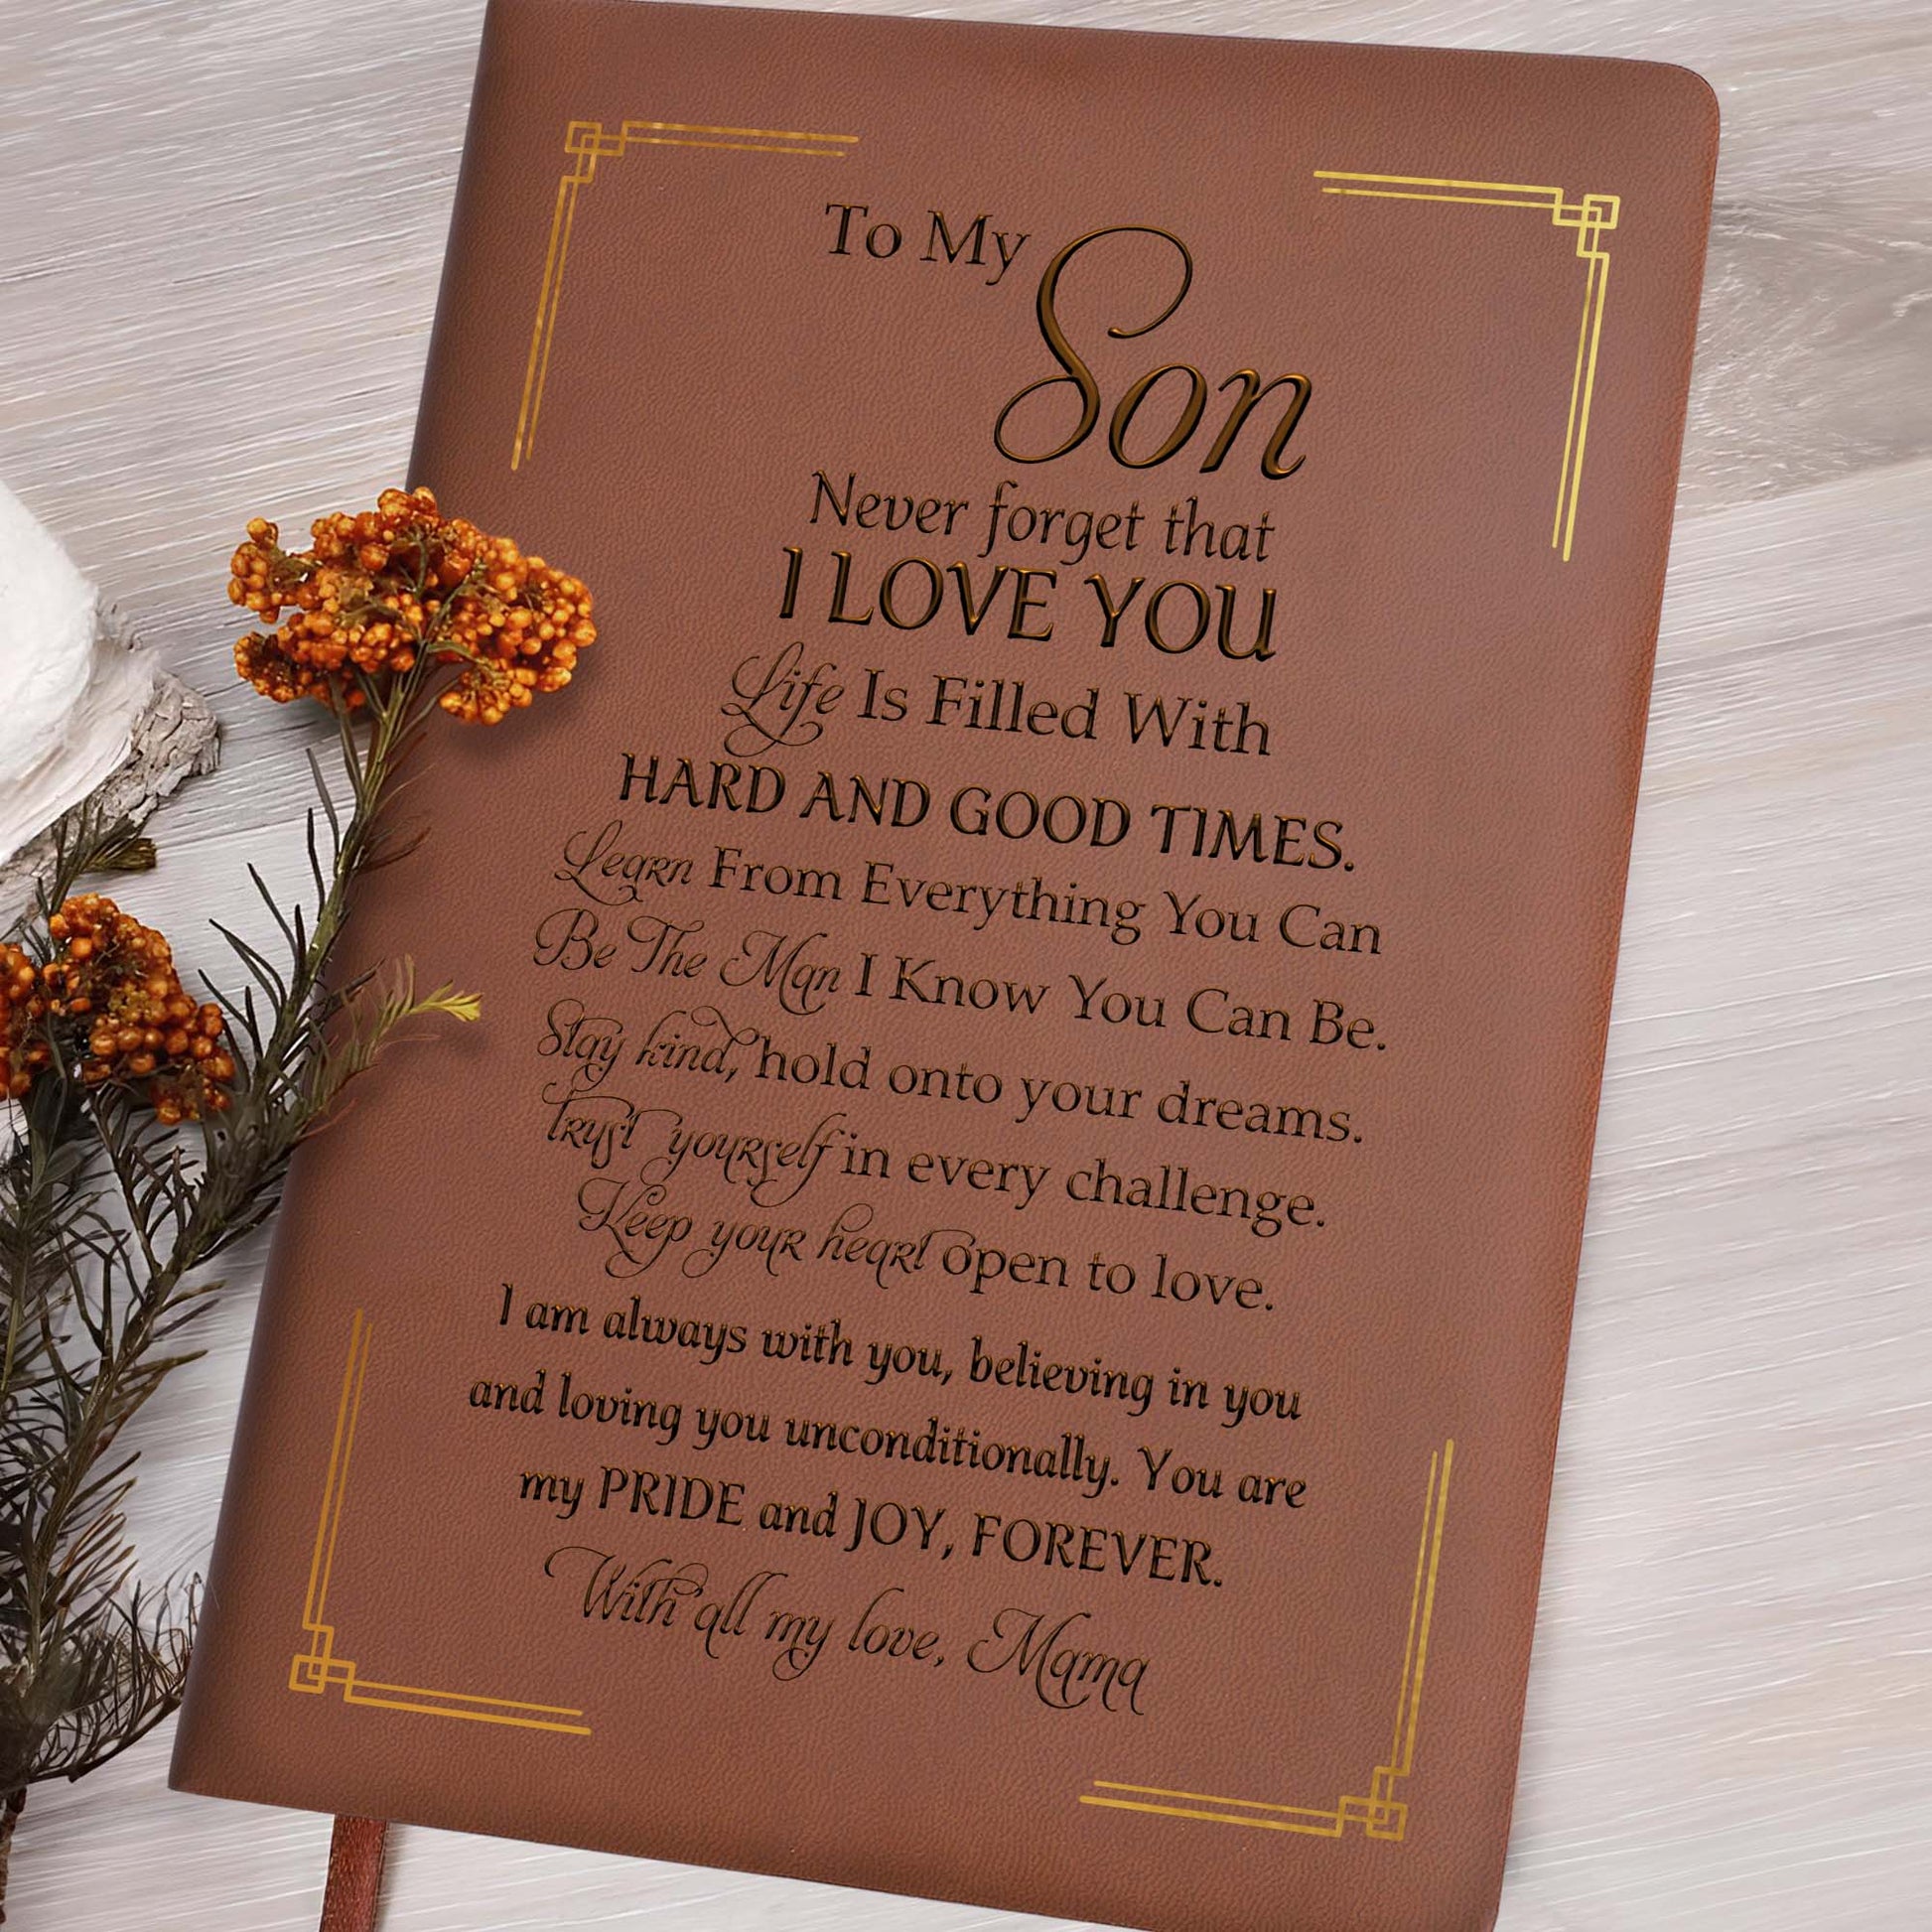 To My Son
Never forget that
I LOVE YOU
Life Is Filled With
HARD AND GOOD TIMES.
Learn From Everything You Can
Be The Man I Know You Can Be.
Stay kind, hold onto your dreams.
Trust yourself in every challenge.
Keep your heart open to love.
I am always with you, believing in you
and loving you unconditionally. You are
my PRIDE and JOY, FOREVER.
With all my love, Mama